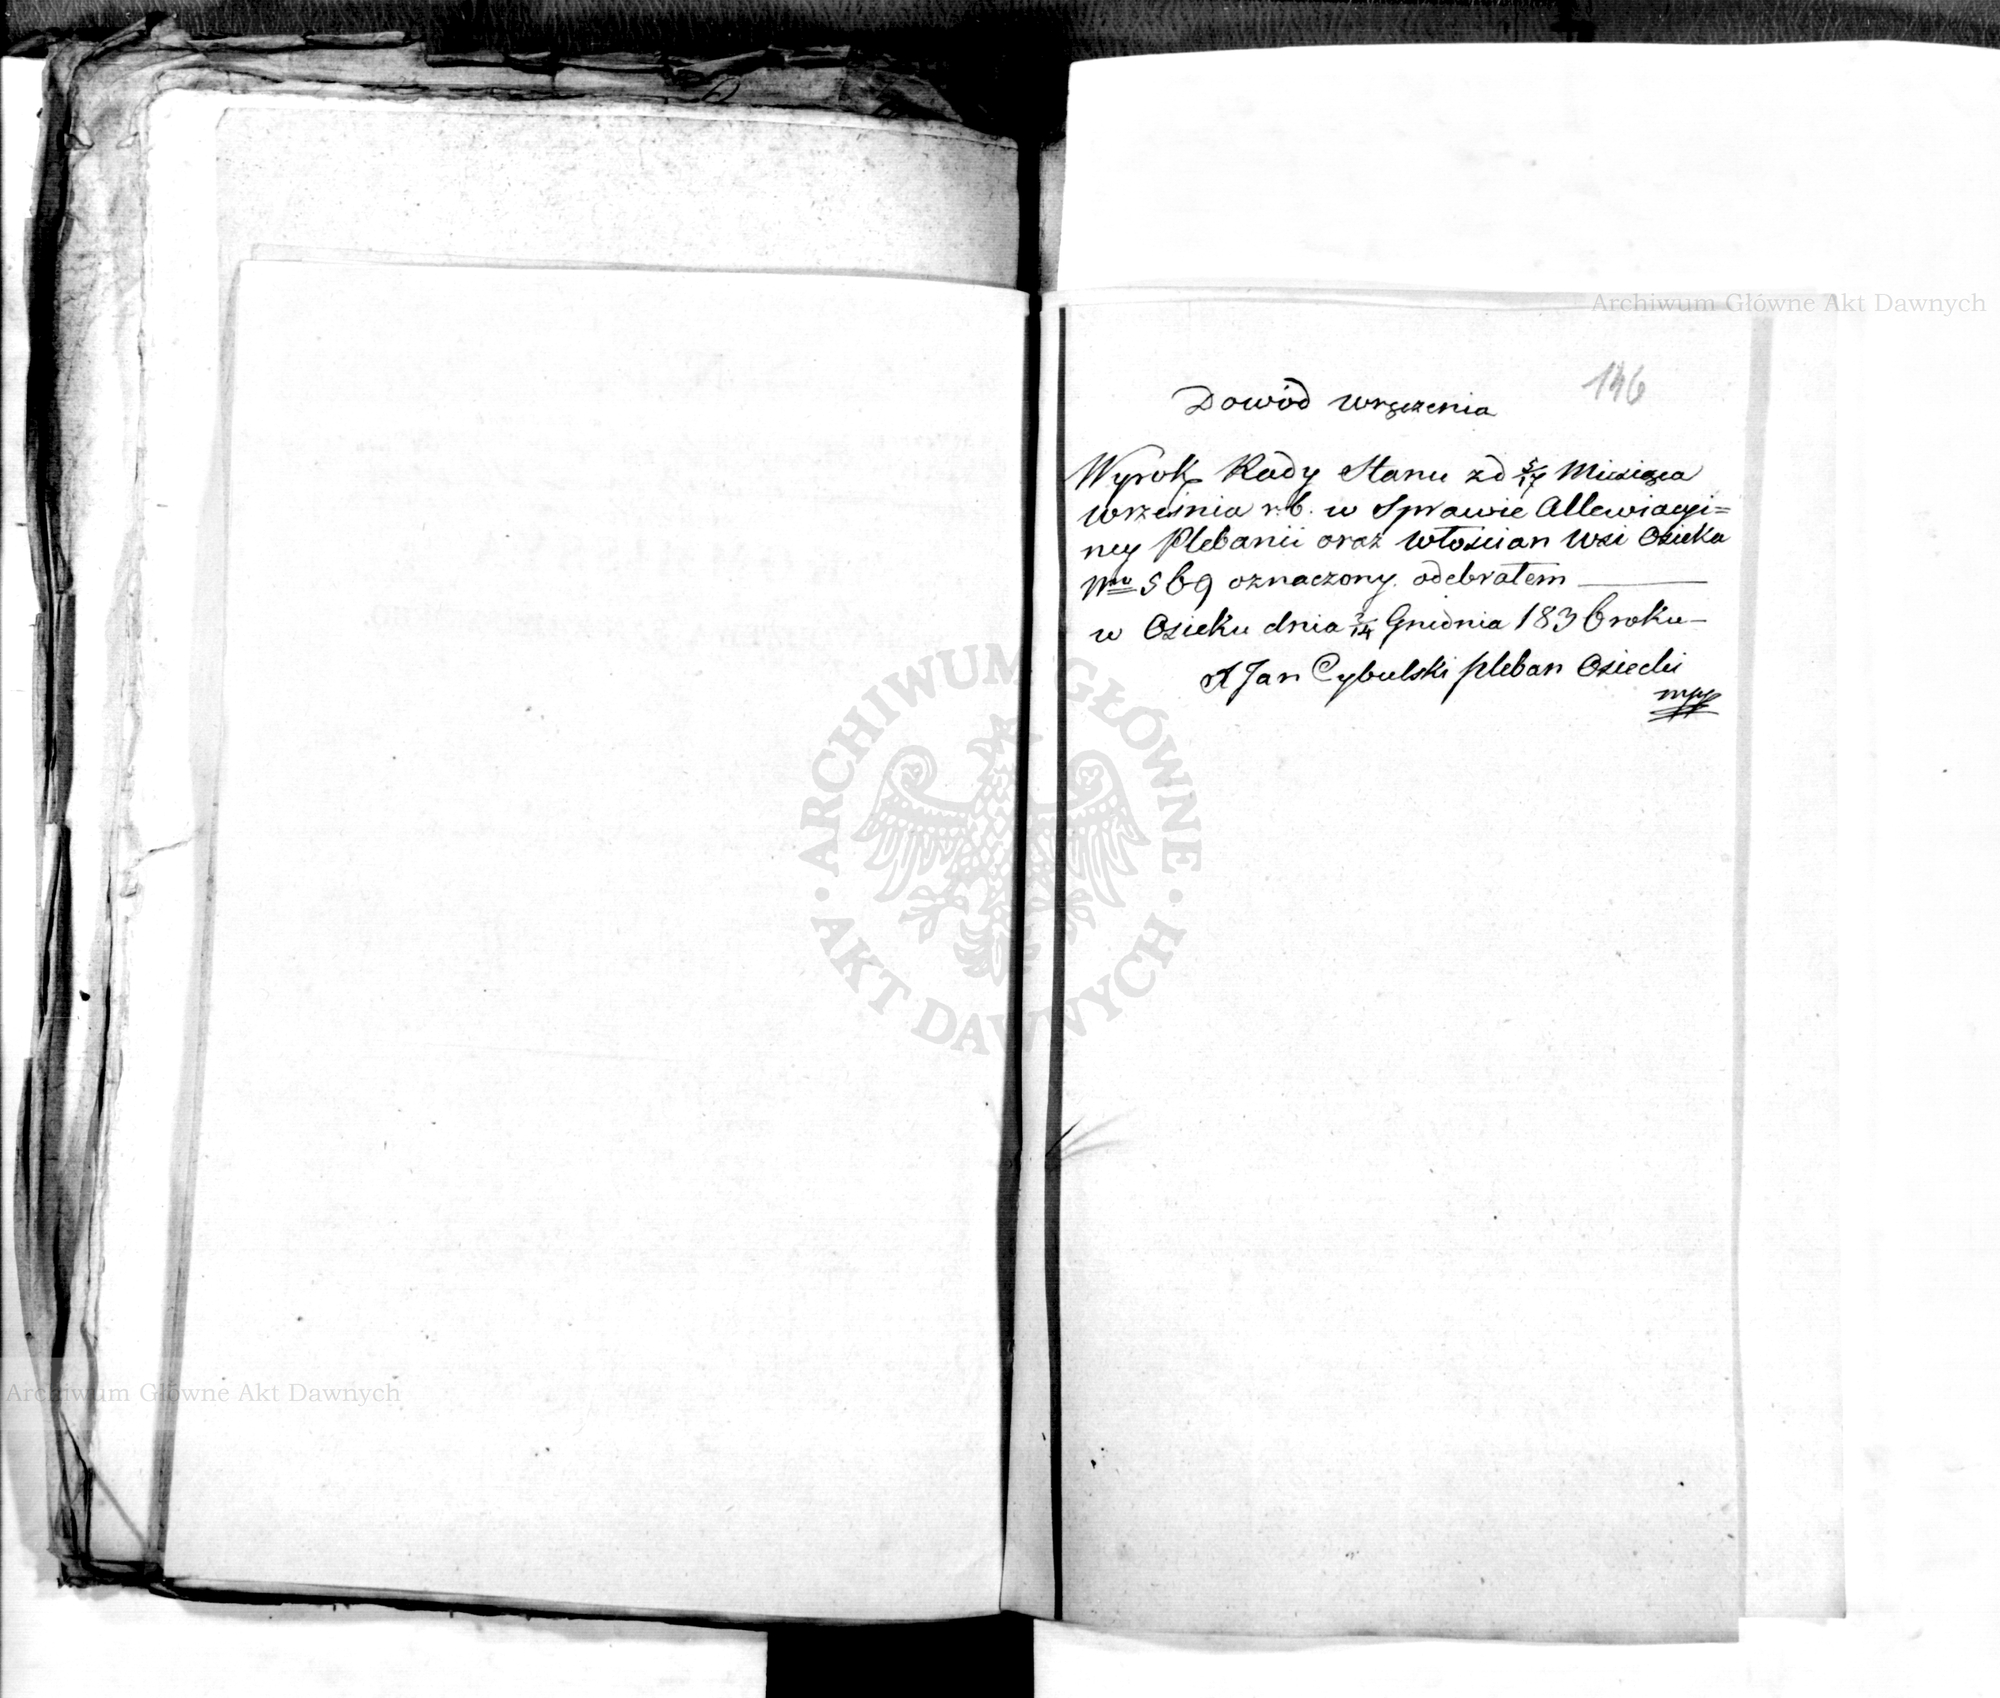 Archiwum Główne Akt Dawnych
146
Dowód wręczenia
Wyrok Rady Stanu z d 5/17 Miesiąca
września r. b. w Sprawie Allewiacyi=
ney Plebanii oraz włościan wsi Osieka
Nro 569 oznaczony odebrałem
w Osieku dnia 2/14 Grudnia 1836 roku
X Jan Cybulski pleban Osiecki
mpp
ARCHIWUM GŁÓWNE
AKT DAWNYCH
Archiwum Główne Akt Dawnych